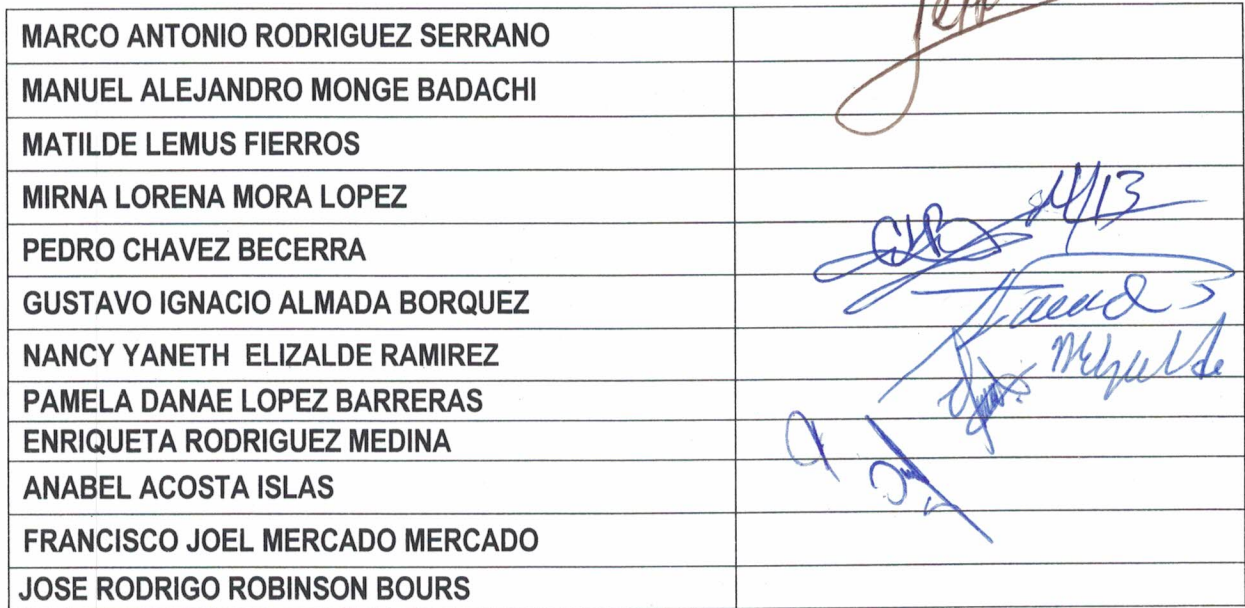 MARCO ANTONIO RODRIGUEZ SERRANO
MANUEL ALEJANDRO MONGE BADACHI
MATILDE LEMUS FIERROS
MIRNA LORENA MORA LOPEZ
PEDRO CHAVEZ BECERRA
GUSTAVO IGNACIO ALMADA BORQUEZ
NANCY YANETH ELIZALDE RAMIREZ
PAMELA DANAE LOPEZ BARRERAS
ENRIQUETA RODRIGUEZ MEDINA
ANABEL ACOSTA ISLAS
FRANCISCO JOEL MERCADO MERCADO
JOSE RODRIGO ROBINSON BOURS